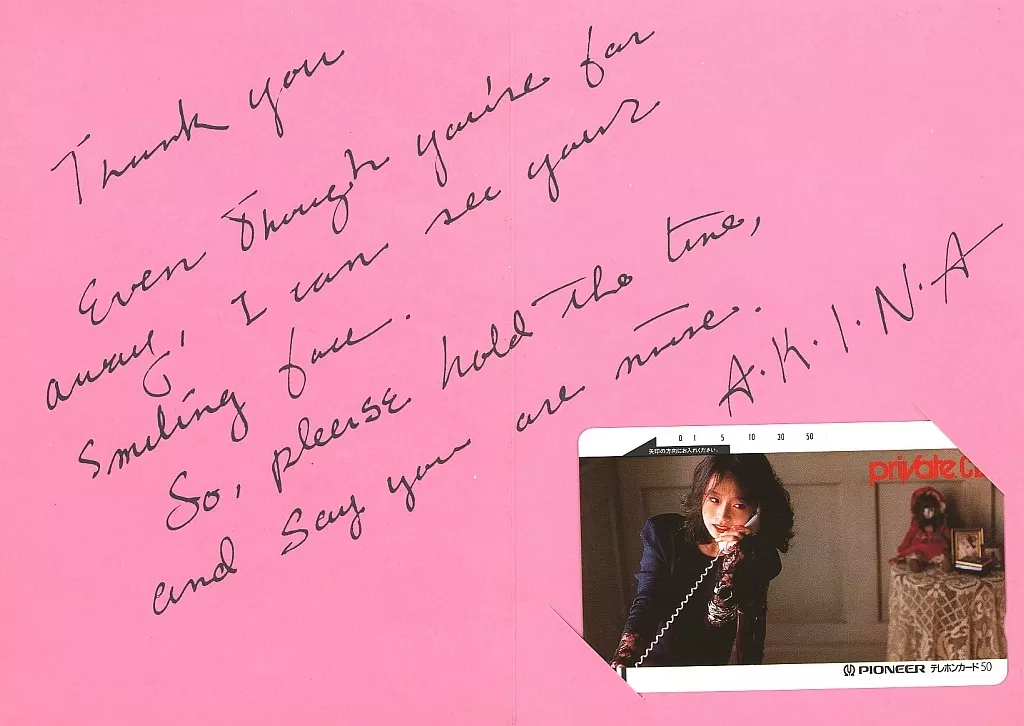 Thank you
Even though you're far
away, I can see your
smiling face.
So, please hold the line,
and say you are mine.
A.K.I.N.A
0 1 5 10 30 50
矢印の方向にお入れください。
private
PIONEER テレホンカード50